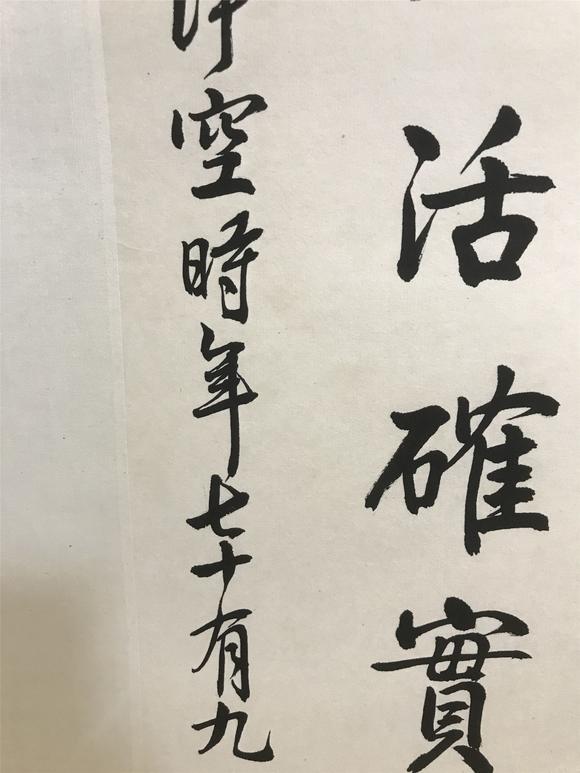 活確實
空時年七十有九